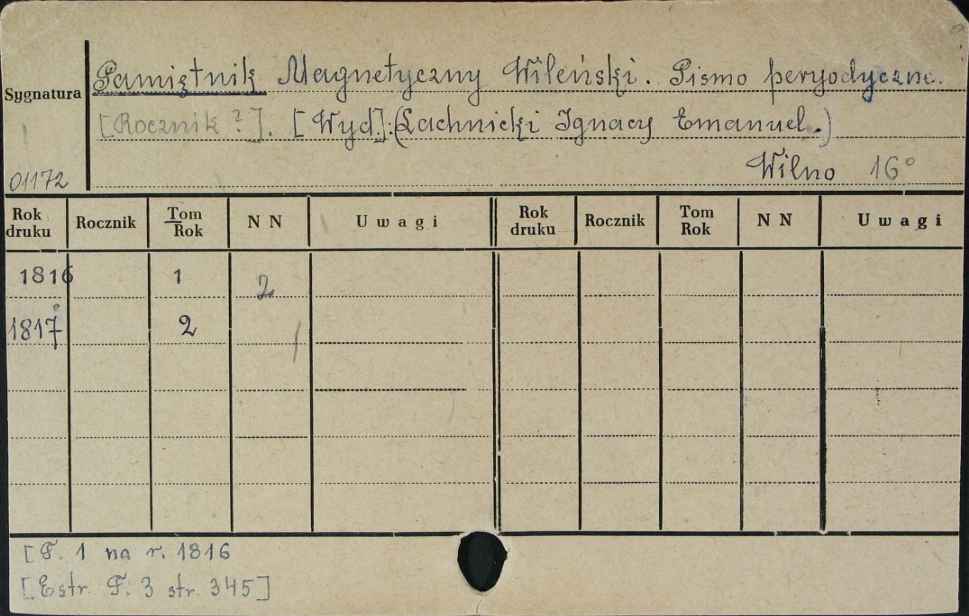 Pamiętnik Magnetyczny Wileński. Pismo peryodyczne.
Sygnatura
[Rocznik ?]. [Wyd.]:(Lachnicki Ignacy Emanuel.)
Wilno 16°
01172
Rok druku Rocznik Tom Rok N N Uwagi Rok druku Rocznik Tom Rok N N Uwagi
1816 1 2
1817 2
[T. 1 na r. 1816
[Estr. T. 3 str. 345]